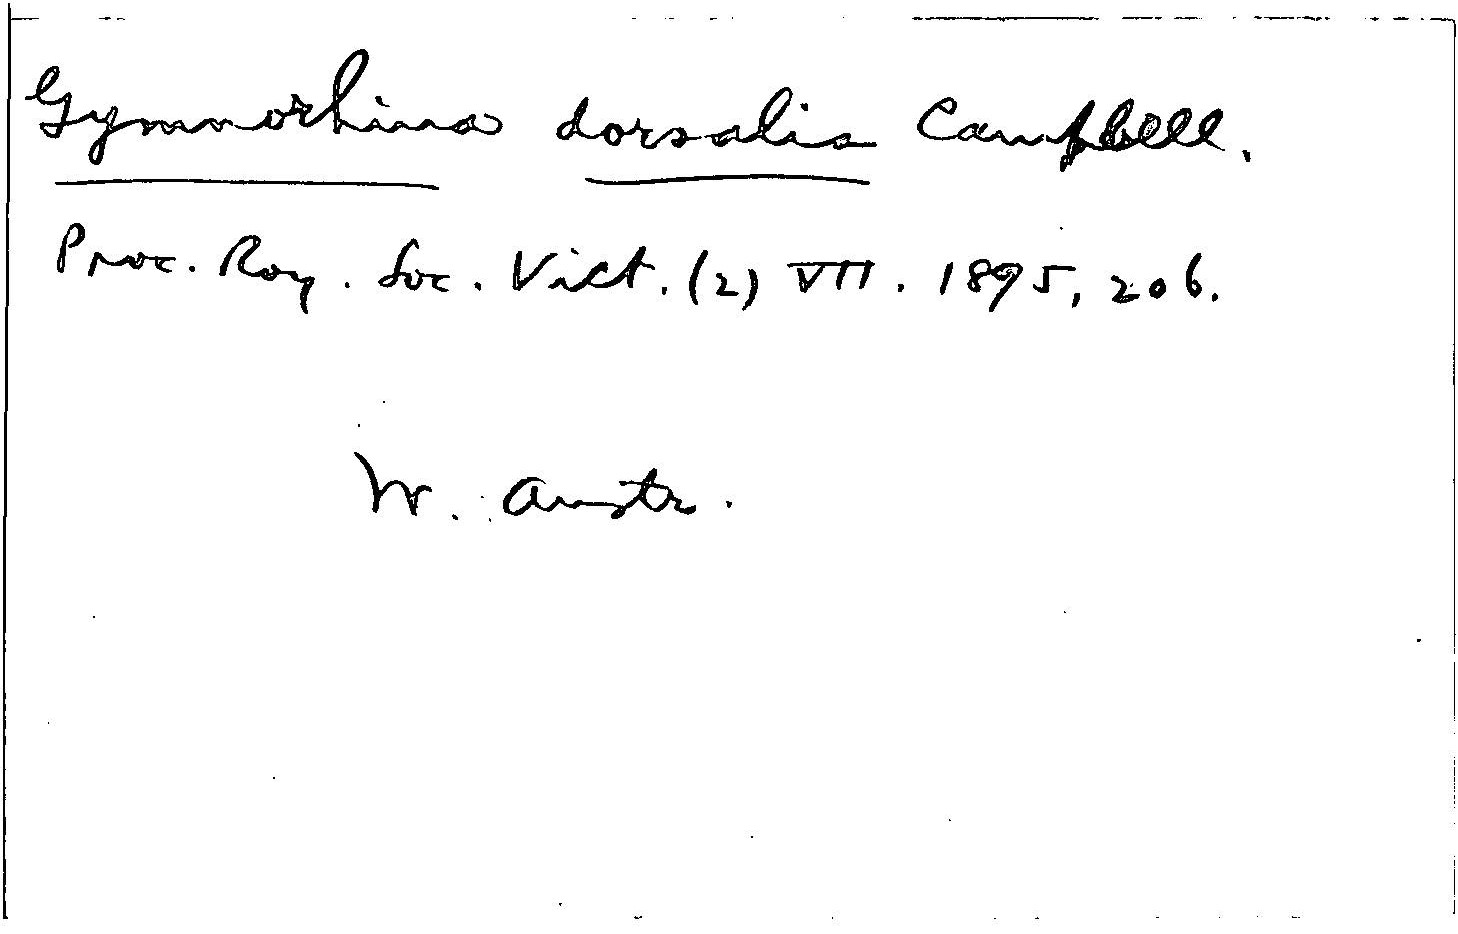 Gymnorhina dorsalis Campbell.
Proc. Roy. Soc. Vict. (2) VII. 1895, 206.
W. Austr.